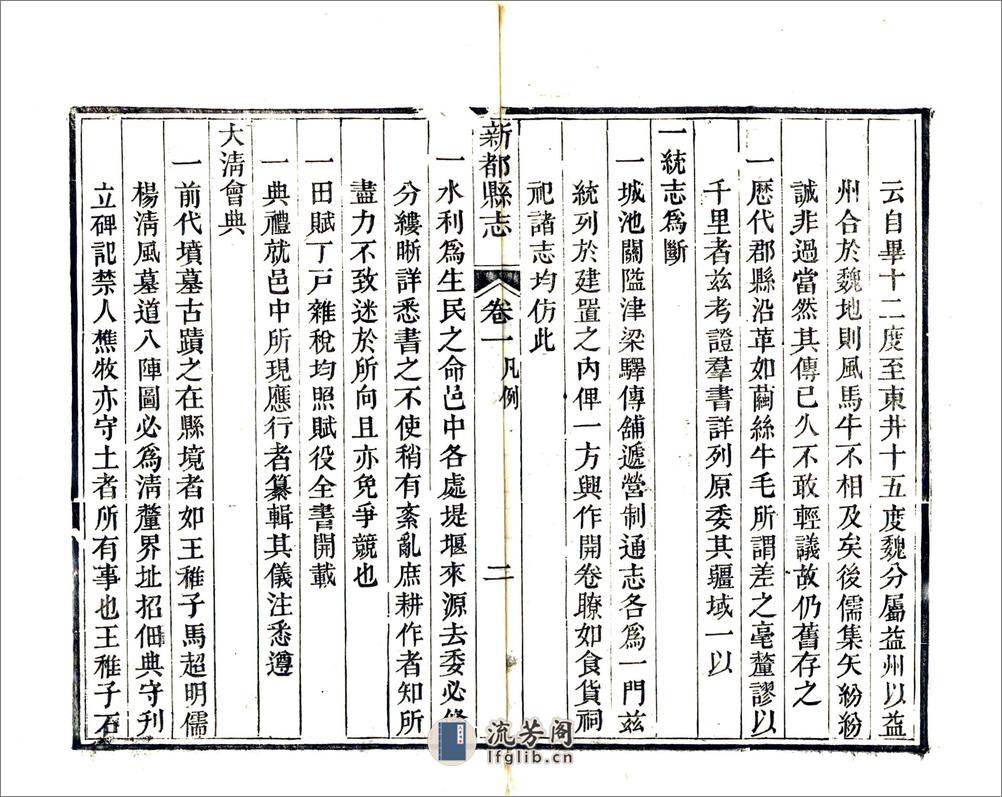 云自畢十二度至東井十五度魏分屬益州以益
州合於魏地則風馬牛不相及矣後儒集矢紛紛
誠非過當然其傳已久不敢輕議故仍舊存之
一歷代郡縣沿革如繭絲牛毛所謂差之毫釐謬以
千里者茲考證羣書詳列原委其疆域一以
一統志爲斷
一城池關隘津梁驛傳舖遞營制通志各爲一門茲
統列於建置之內俾一方興作開卷瞭如食貨祠
祀諸志均仿此
新都縣志 卷一 凡例 二
一水利爲生民之命邑中各處堤堰來源去委必條
分縷晰詳悉書之不使稍有紊亂庶耕作者知所
盡力不致迷於所向且亦免爭競也
一田賦丁戸雜稅均照賦役全書開載
一典禮就邑中所現應行者纂輯其儀注悉遵
大淸會典
一前代墳墓古蹟之在縣境者如王稚子馬超明儒
楊淸風墓道八陣圖必爲淸釐界址招佃典守刊
立碑記禁人樵牧亦守土者所有事也王稚子石
流芳阁
lfglib.cn